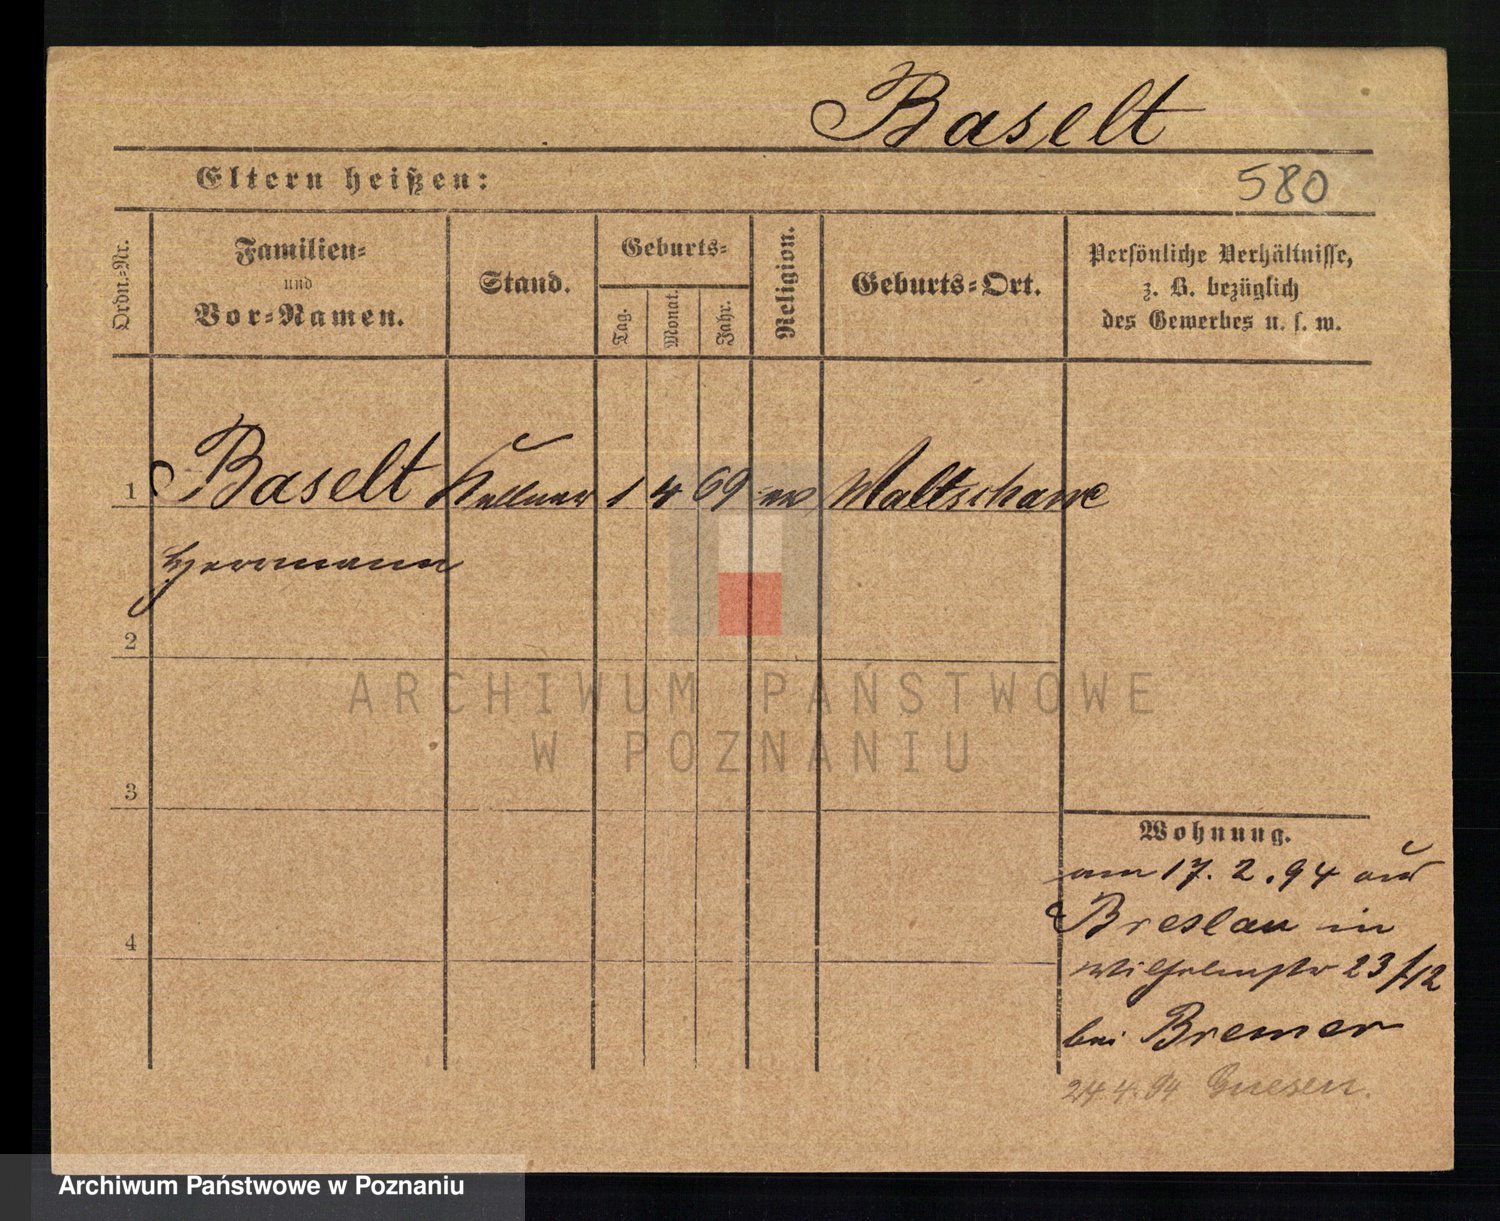 Baselt
Eltern heißen:
580
Ordn.-Nr.
Familien-
und
Vor-Namen.
Stand.
Geburts-
Tag.
Monat.
Jahr.
Religion.
Geburts-Ort.
Persönliche Verhältnisse,
z. B. bezüglich
des Gewerbes u. s. w.
1 Baselt Kellner 1 4 69 ev Waltschawe
Herrmann
2
ARCHIWUM PAŃSTWOWE
W POZNANIU
3
Wohnung.
am 17. 2. 94 aus
Breslau in
4
Wilhelmstr 23/12
bei Bremer
24.4.94 Gnesen.
Archiwum Państwowe w Poznaniu